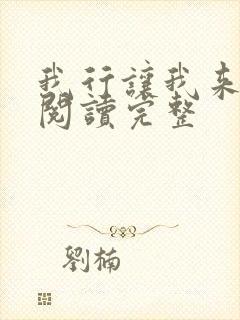 我行讓我來
閱讀完整
劉楠